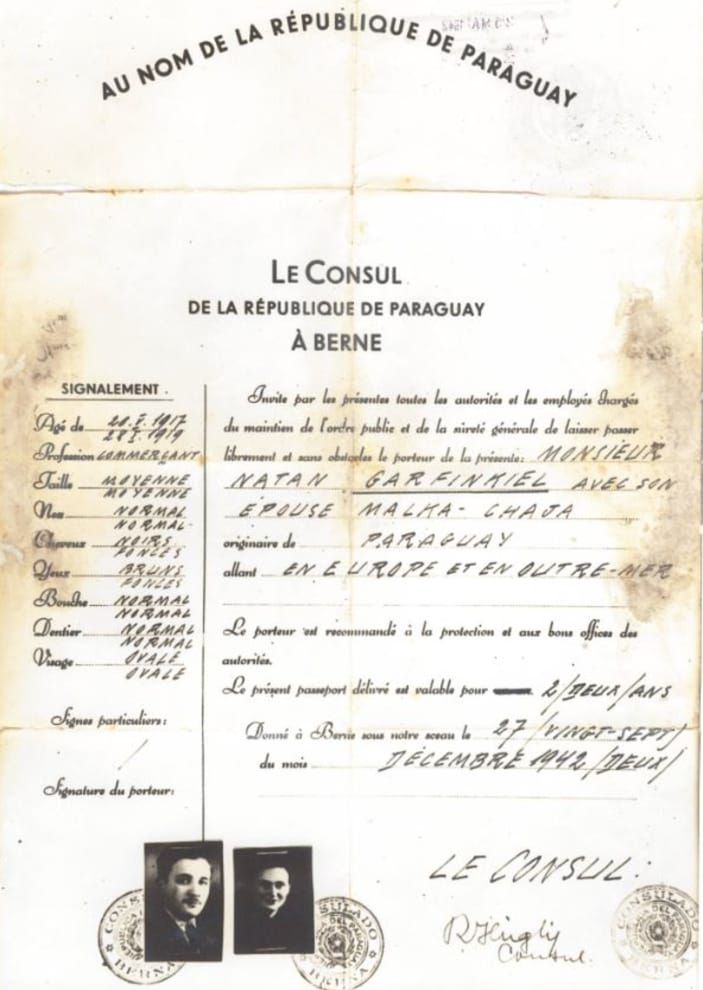 AU NOM DE LA RÉPUBLIQUE DE PARAGUAY
LE CONSUL
DE LA RÉPUBLIQUE DE PARAGUAY
À BERNE
SIGNALEMENT.
Agé de 20.I.1917
28 I. 1919
Profession COMMERÇANT
Taille MOYENNE
MOYENNE
Nez NORMAL
NORMAL
Cheveux NOIRS
FONCÉS
Yeux BRUNS
FONCÉS
Bouche NORMAL
NORMAL
Dentier NORMAL
NORMAL
Visage OVALE
OVALE
Signes particuliers:
/
Signature du porteur:
Invite par les présentes toutes les autorités et les employés chargés
du maintien de l'ordre public et de la sûreté générale de laisser passer
librement et sans obstacles le porteur de la présente: MONSIEUR
NATAN GARFINKIEL AVEC SON
ÉPOUSE MALKA-CHAJA
originaire de PARAGUAY
allant EN EUROPE ET EN OUTRE-MER
Le porteur est recommandé à la protection et aux bons offices des
autorités.
Le présent passeport délivré est valable pour 2/DEUX/ANS
Donné à Berne sous notre sceau le 27/VINGT-SEPT/
du mois DÉCEMBRE 1942/DEUX/
LE CONSUL:
RHügly
Consul.
CONSULADO DEL PARAGUAY
BERNA
CONSULADO DEL PARAGUAY
BERNA
CONSULADO DEL PARAGUAY
BERNA